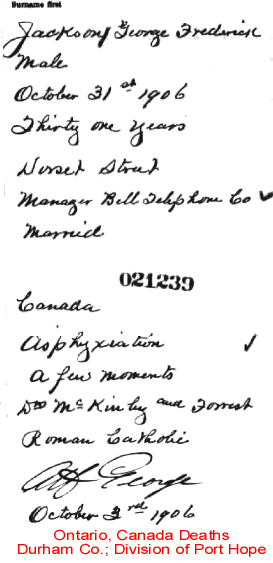 Surname first
Jackson, George Frederick
Male
October 31st 1906
Thirty one years
Dorset Street
Manager Bell Telephone Co ✓
Married
021239
Canada
Asphyxiation ✓
a few moments
Drs McKinley and Forrest
Roman Catholic
George
October 3rd 1906
Ontario, Canada Deaths
Durham Co.; Division of Port Hope